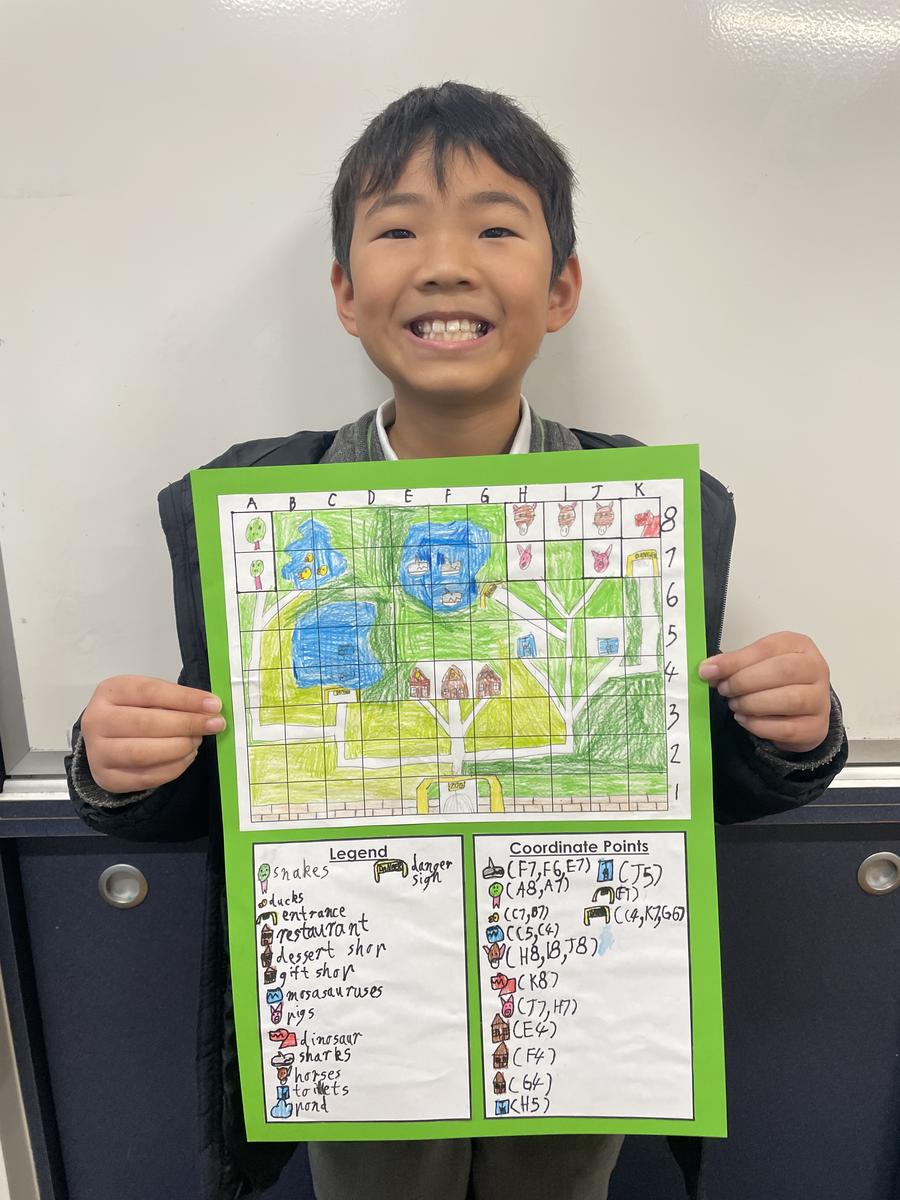 A B C D E F G H I J K
8
7
6
5
4
3
2
1
ZOO
Legend
snakes
danger
sign
ducks
entrance
restaurant
dessert shop
gift shop
mosasauruses
pigs
dinosaur
sharks
horses
toilets
pond
Coordinate Points
(F7, F6, E7)
(A8, A7)
(C7, B7)
(C5, C4)
(H8, I8, J8)
(K8)
(J7, H7)
(E4)
(F4)
(G4)
(H5)
(J5)
(F1)
(C4, K7, G6)